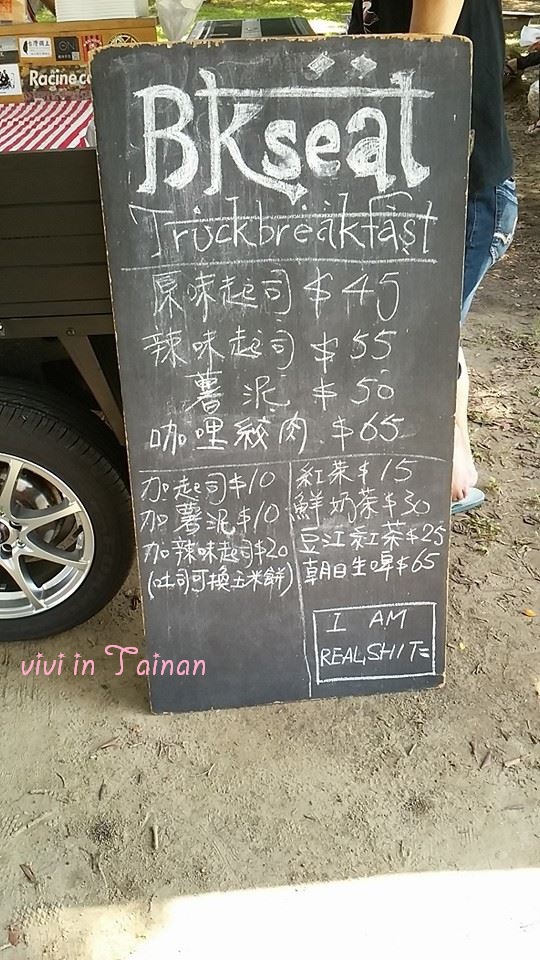 Racine.co
BKseat
Truckbreakfast
原味起司 $45
辣味起司 $55
薯泥 $50
咖哩絞肉 $65
加起司$10
加薯泥$10
加辣味起司$20
(吐司可換玉米餅)
紅茶$15
鮮奶茶$30
豆江紅茶$25
朝日生啤$65
I AM
REAL,SHIT=
vivi in Tainan